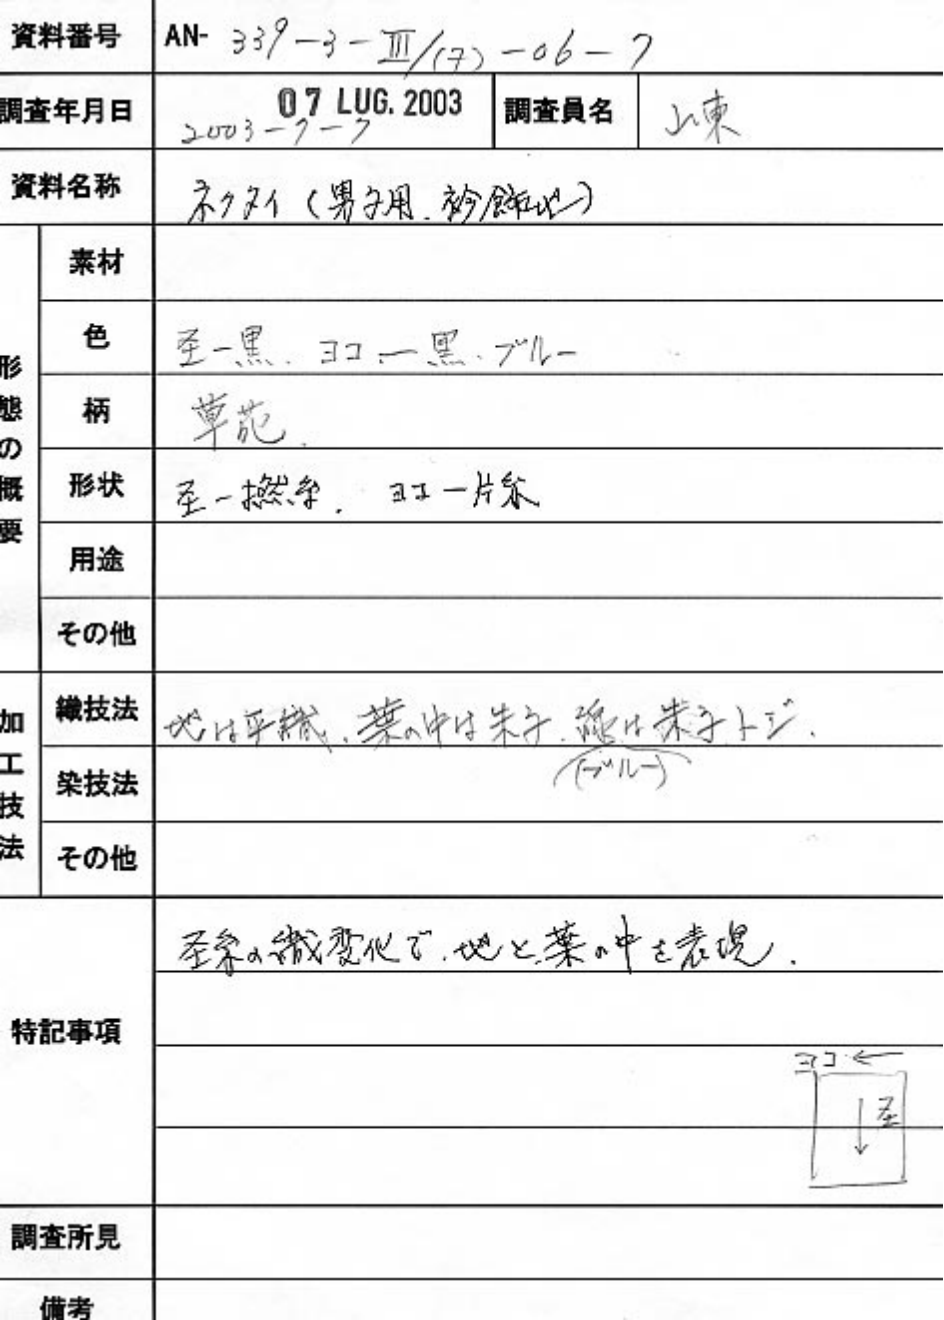 資料番号 AN- 339-3-Ⅲ/(7)-06-7
07 LUG. 2003
調査年月日 2003-7-7 調査員名 山東
資料名称 ネクタイ(男子用、衿飾地)
形態の概要
素材
色 圣-黒、ヨコ-黒、ブルー
柄 草花
形状 圣-撚糸、ヨコ-片糸
用途
その他
加工技法
織技法 地は平織、葉の中は朱子、線は朱子トジ.
(ブルー)
染技法
その他
特記事項 圣糸の織変化で、地と葉の中を表現.
ヨコ←
↓圣
調査所見
備考